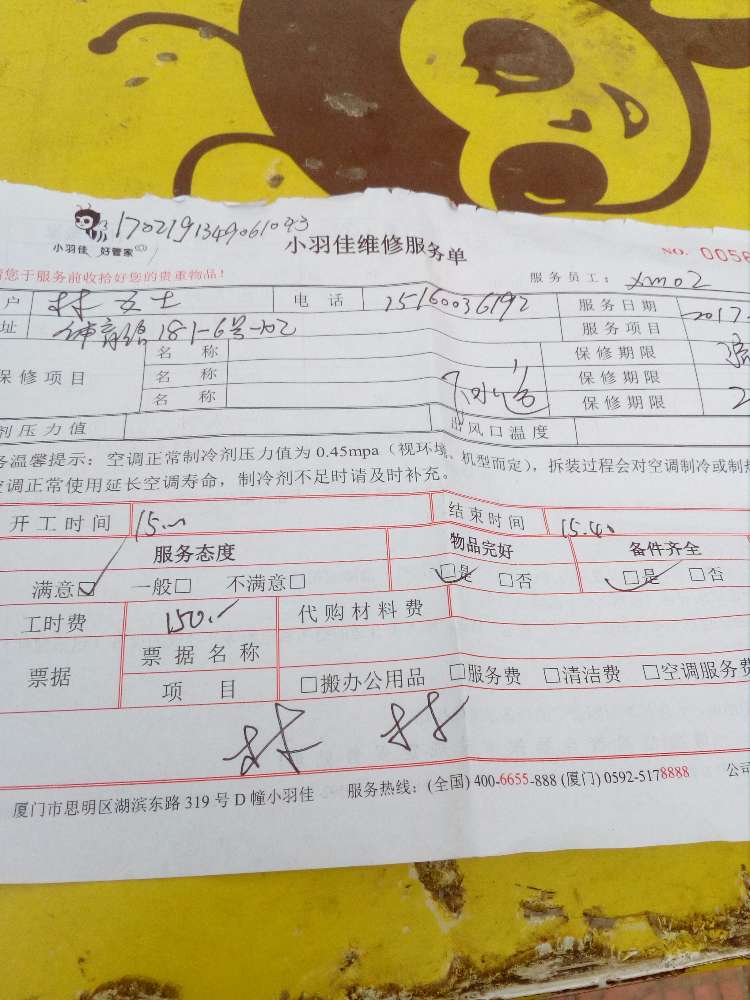 1702191349061093
小羽佳 好管家
小羽佳维修服务单
NO. 0058
您于服务前收拾好您的贵重物品！
服务员工： xm02
户 林女士 电话 15160036192 服务日期 2017.
址 体育馆181-6号-102 服务项目
保修项目 名称 保修期限
名称 保修期限
名称 保修期限 2
剂压力值 出风口温度
务温馨提示：空调正常制冷剂压力值为 0.45mpa（视环境、机型而定），拆装过程会对空调制冷或制热
空调正常使用延长空调寿命，制冷剂不足时请及时补充。
开工时间 15. 结束时间 15.40
服务态度 物品完好 备件齐全
满意☑ 一般□ 不满意□ □是 □否 □是 □否
工时费 150.- 代购材料费
票据 票据名称
项目 □搬办公用品 □服务费 □清洁费 □空调服务费
林 林
厦门市思明区湖滨东路 319 号 D 幢小羽佳 服务热线：(全国) 400-6655-888 (厦门) 0592-5178888 公司